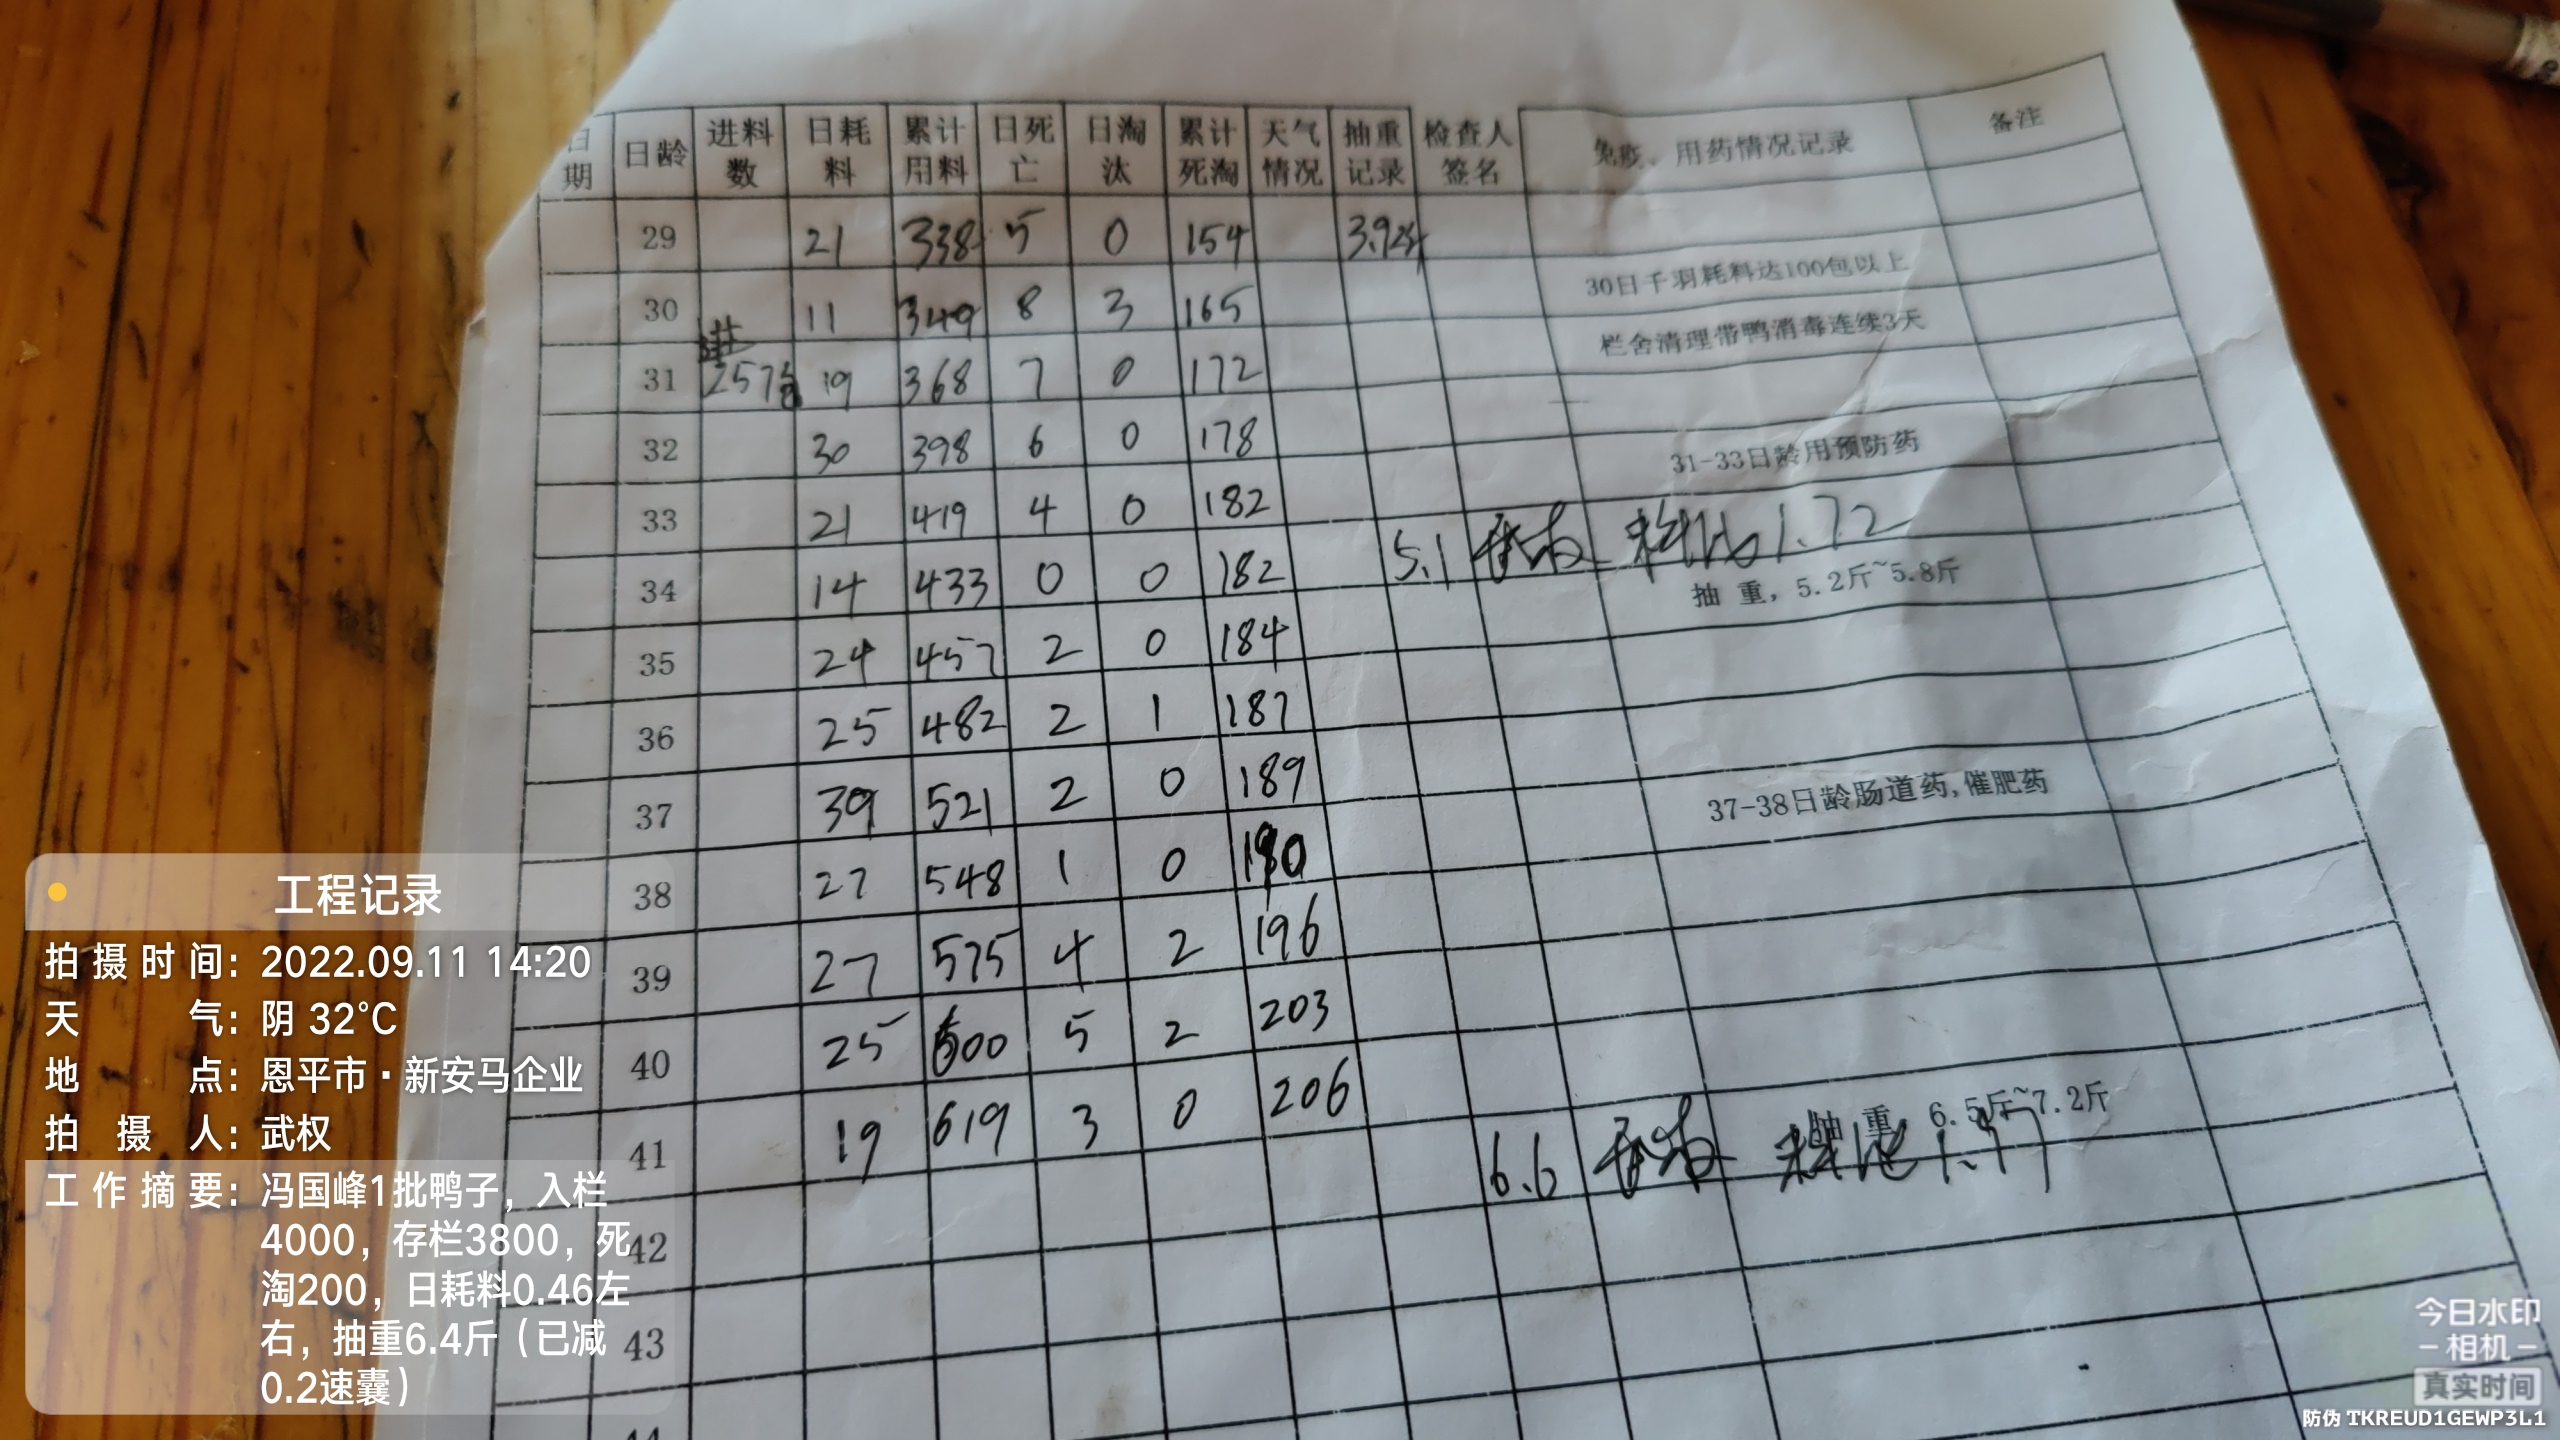 日期 日龄 进料数 日耗料 累计用料 日死亡 日淘汰 累计死淘 天气情况 抽重记录 检查人签名 免疫、用药情况记录 备注
29 21 338 5 0 154 3.9斤
30 11 349 8 3 165 30日千羽耗料达100包以上
进
31 257包 19 368 7 0 172 栏舍清理带鸭消毒连续3天
32 30 398 6 0 178
33 21 419 4 0 182 31-33日龄用预防药
34 14 433 0 0 182 5.1 料比1.72
抽 重，5.2斤~5.8斤
35 24 457 2 0 184
36 25 482 2 1 187
37 39 521 2 0 189
38 27 548 1 0 190 37-38日龄肠道药,催肥药
39 27 575 4 2 196
40 25 600 5 2 203
41 19 619 3 0 206 抽 重 6.5斤~7.2斤
6.6 料比1.97
42
43
44
工程记录
拍摄时间：2022.09.11 14:20
天气：阴 32℃
地点：恩平市·新安马企业
拍摄人：武权
工作摘要：冯国峰1批鸭子，入栏
4000，存栏3800，死
淘200，日耗料0.46左
右，抽重6.4斤（已减
0.2速囊）
今日水印
-相机-
真实时间
防伪 TKREUD1GEWP3L1